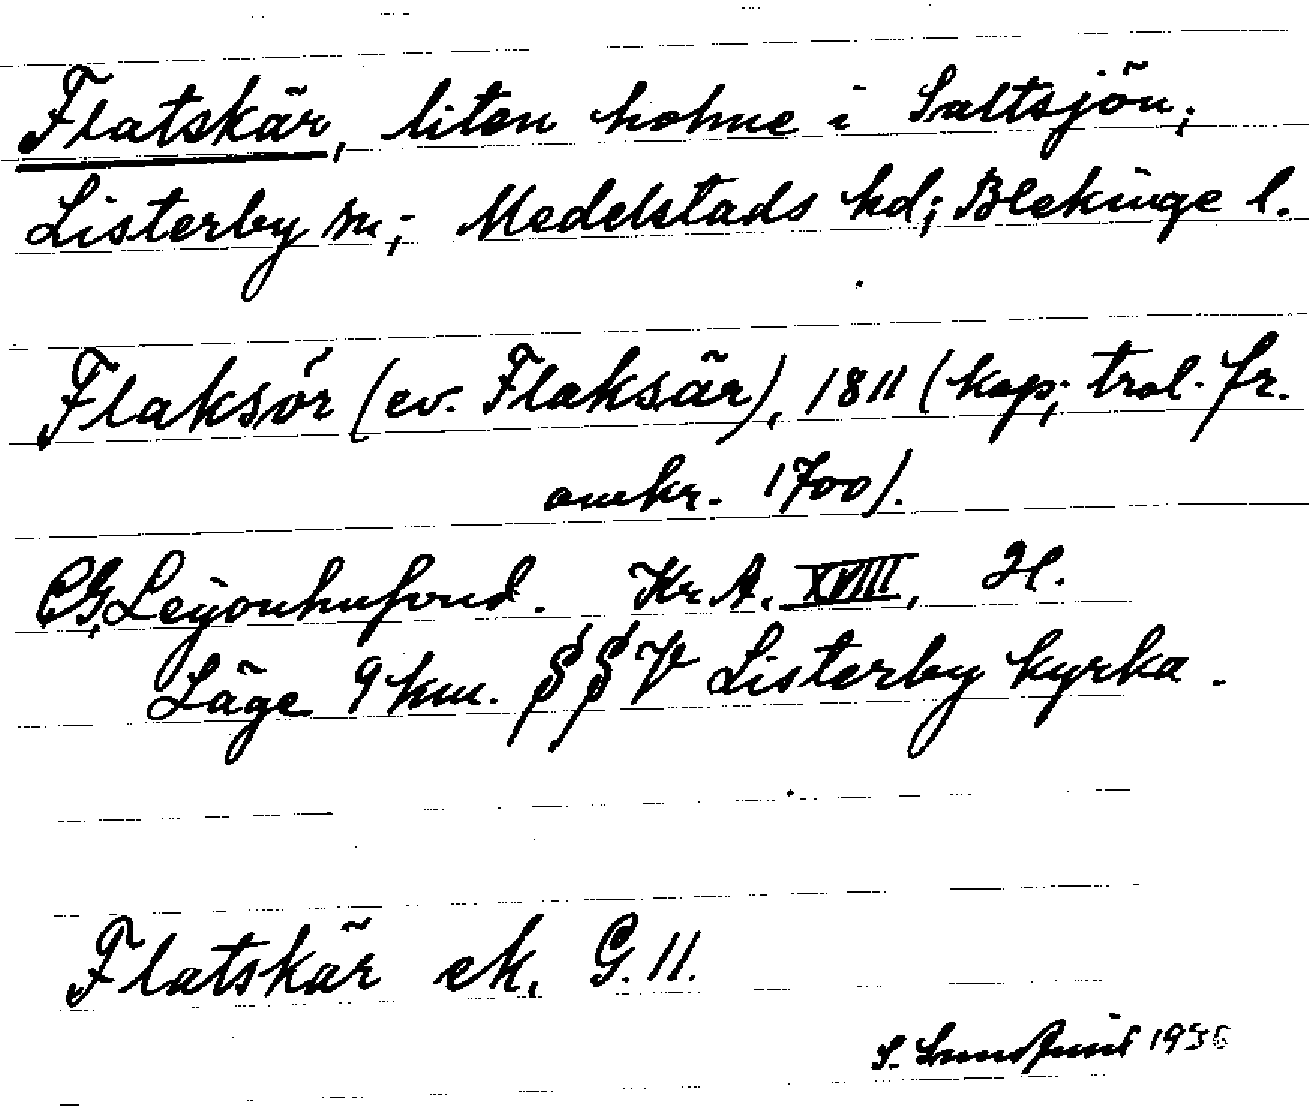 Flatskär, liten holme i Saltsjön,
Listerby sn, Medelstads hd; Blekinge l.
Flaksör (ev. Flaksär), 1811 (kop, trol. fr.
omkr. 1700).
CG, Leijonhufvud. Kr A. XVIII, H.
Läge 9 km. SSV Listerby kyrka.
Flatskär ek. G. 11.
S. 1956